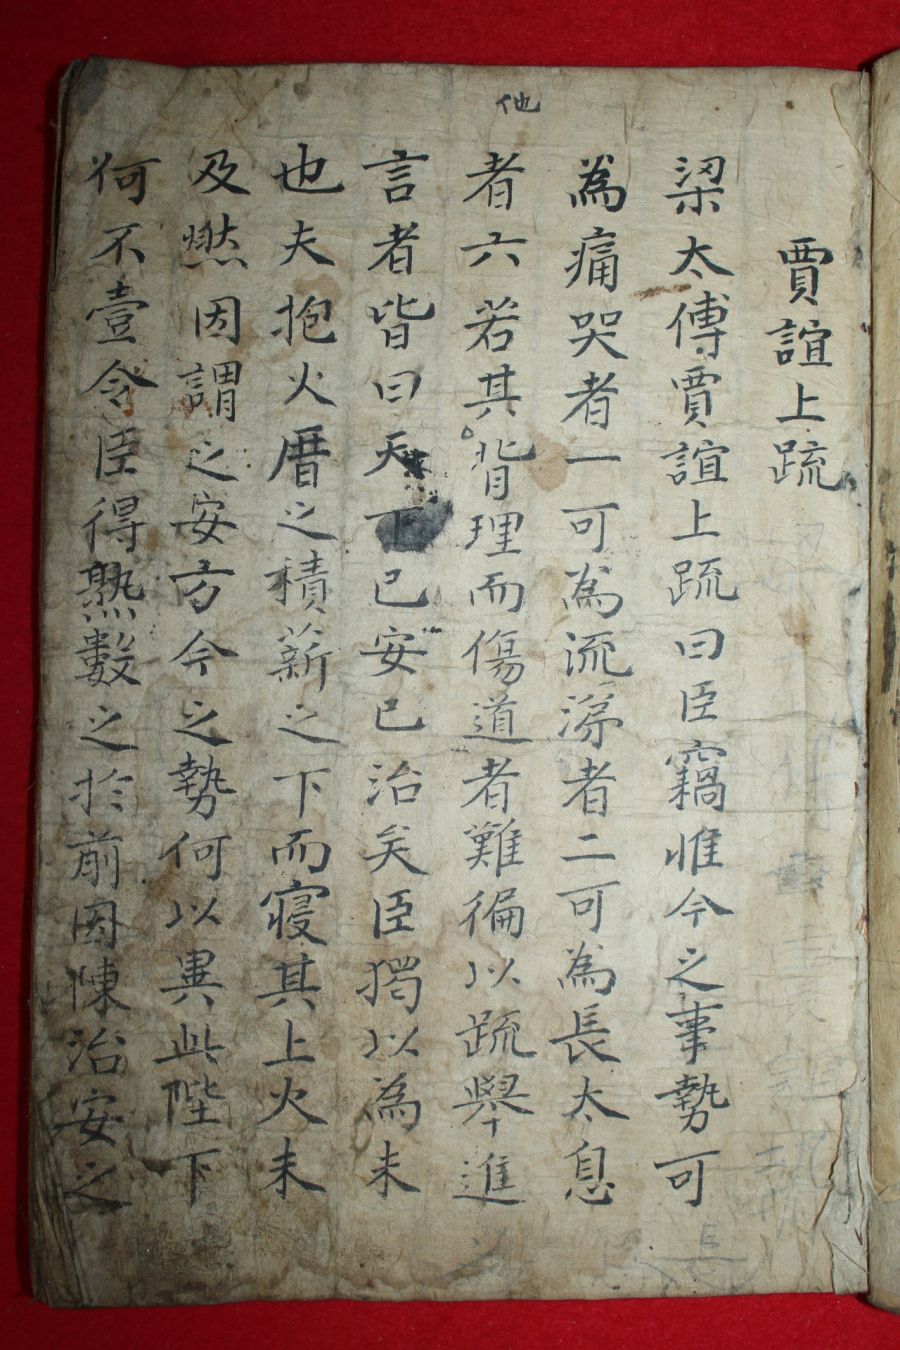 賈誼上疏
梁太傅賈誼上疏曰臣竊惟今之事勢可
為痛哭者一可為流涕者二可為長太息
他
者六若其背理而傷道者難徧以疏舉進
言者皆曰天下已安已治矣臣獨以為未
也夫抱火厝之積薪之下而寢其上火未
及燃因謂之安方今之勢何以異此陛下
何不壹令臣得熟數之於前因陳治安之